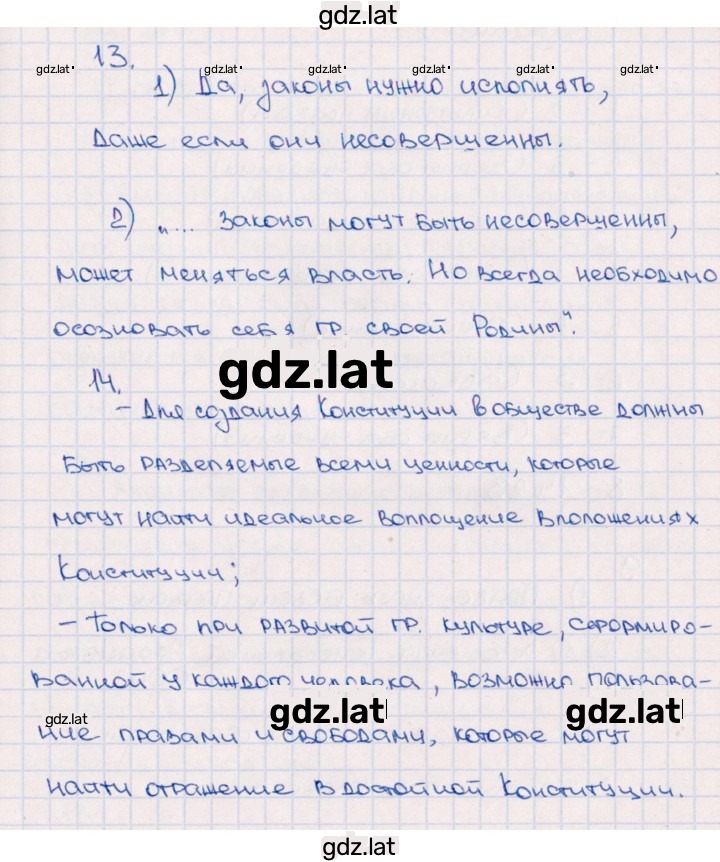 gdz.lat
13.
gdz.lat gdz.lat gdz.lat gdz.lat gdz.lat
1) Да, законы нужно исполнять,
даже если они несовершенны.
2) „... Законы могут быть несовершенны,
может меняться власть. Но всегда необходимо
осозновать себя гр. своей Родины".
gdz.lat
14.
– Для создания Конституции в обществе должны
быть разделяемые всеми ценности, которые
могут найти идеальное воплощение в положениях
Конституции;
– Только при развитой гр. культуре, сформиро-
ванной у каждого человека, возможно пользова-
gdz.lat gdz.lat gdz.lat
ние правами и свободами, которые могут
найти отражение в достойной Конституции.
gdz.lat